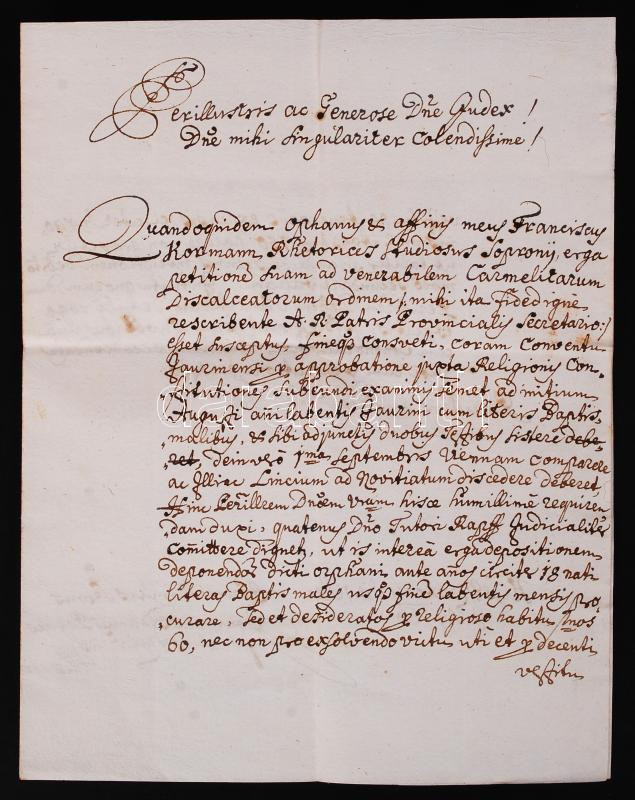 Perillustris ac Generose Dn̄e Judex!
Dn̄e mihi singulariter Colendissime!
Quandoquidem ophanus & affinis meus Franciscus
Kormann Rhetorices Studiosus Sopronÿ, erga
petitionē suam ad venerabilem Carmelitarum
Discalceatorum ordinem /: mihi ita fidedigne
rescribente A. R. Patris Provincialis Secretario :/
esset susceptus fineq3 consveti, coram Conventu
Jaurinensi p approbatione juxta Religionis Con-
stitutiones subeundi examinis ad initium
Augusti añi labentis Jaurini cum literis Baptis,
malibus, & sibi adjunctis duobus Testibus sistere debe-
ret, dein verò 1ma Septembris Viennam comparere
ac Lincium ad Novitiatum discedere deberet,
Hinc Perillrem Dnoem Vram hisce humillimè requiren
dam duxi, quatenus Dno Tutori Rapff Judicialiter
com̄ittere dignet, ut is intereà erga depositionem
deponendos dicti orphani ante años circiter 18 nati
literas Baptismales usq3 finē labentis mensis pro,
curare, sed et desideratos p religioso habitu fnos
60, nec non pro exsolvendo victu uti et p decenti
vestitu
darabanth